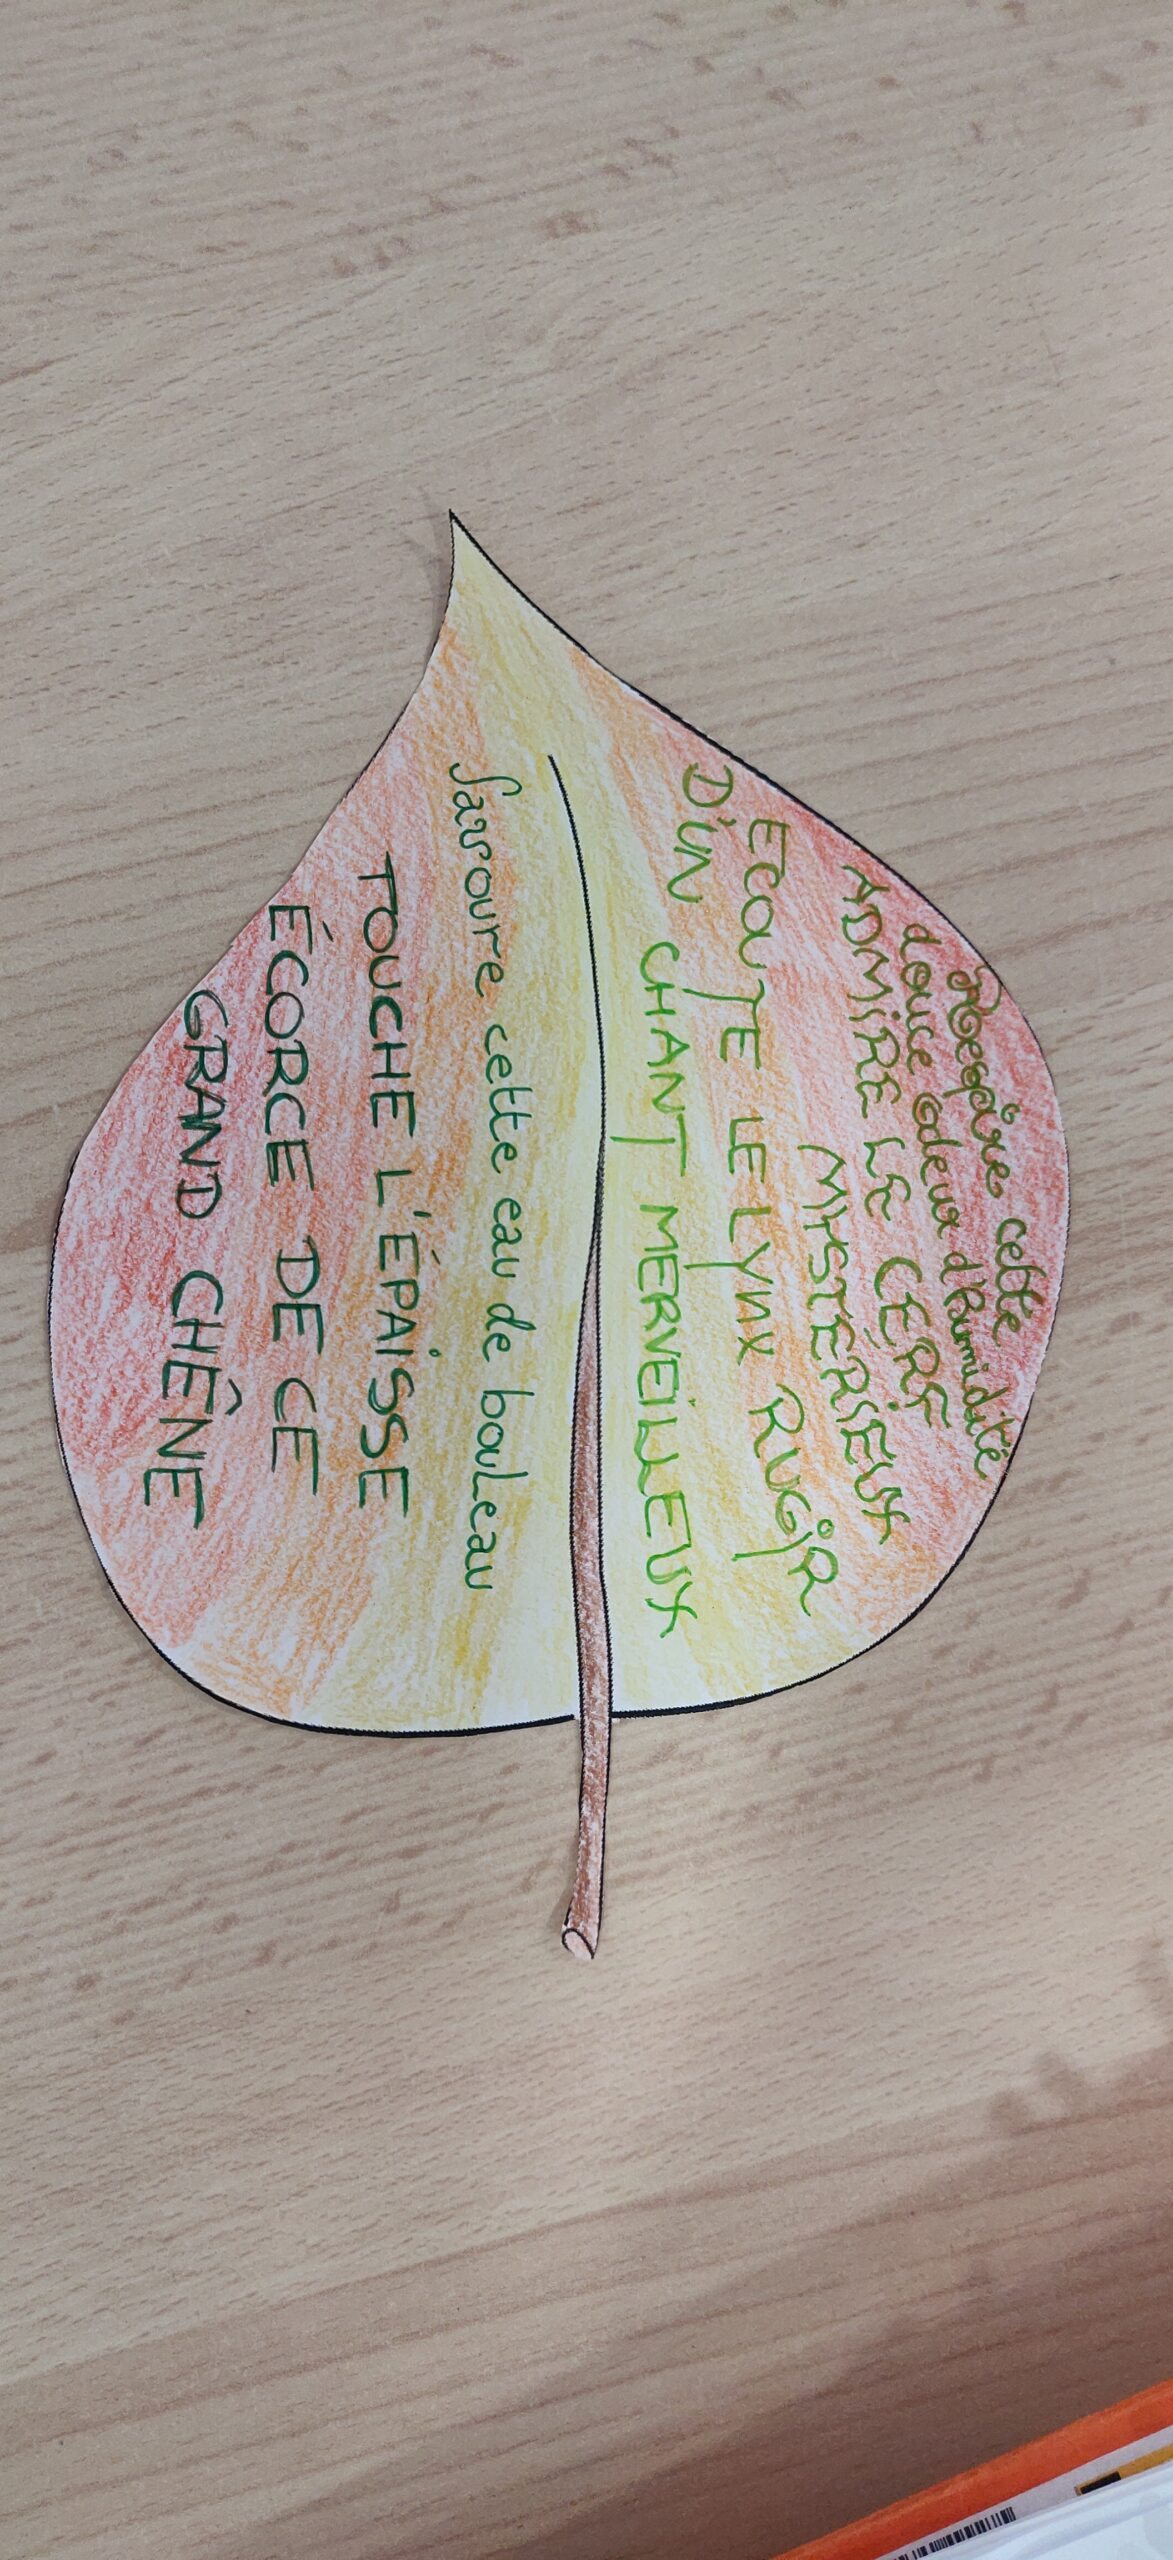 Respire cette
douce odeur d'humidité
ADMIRE LE CERF
MYSTÉRIEUX
ECOUTE LE LYNX RUGIR
D'UN CHANT MERVEILLEUX
Savoure cette eau de bouleau
TOUCHE L'ÉPAISSE
ÉCORCE DE CE
GRAND CHÊNE